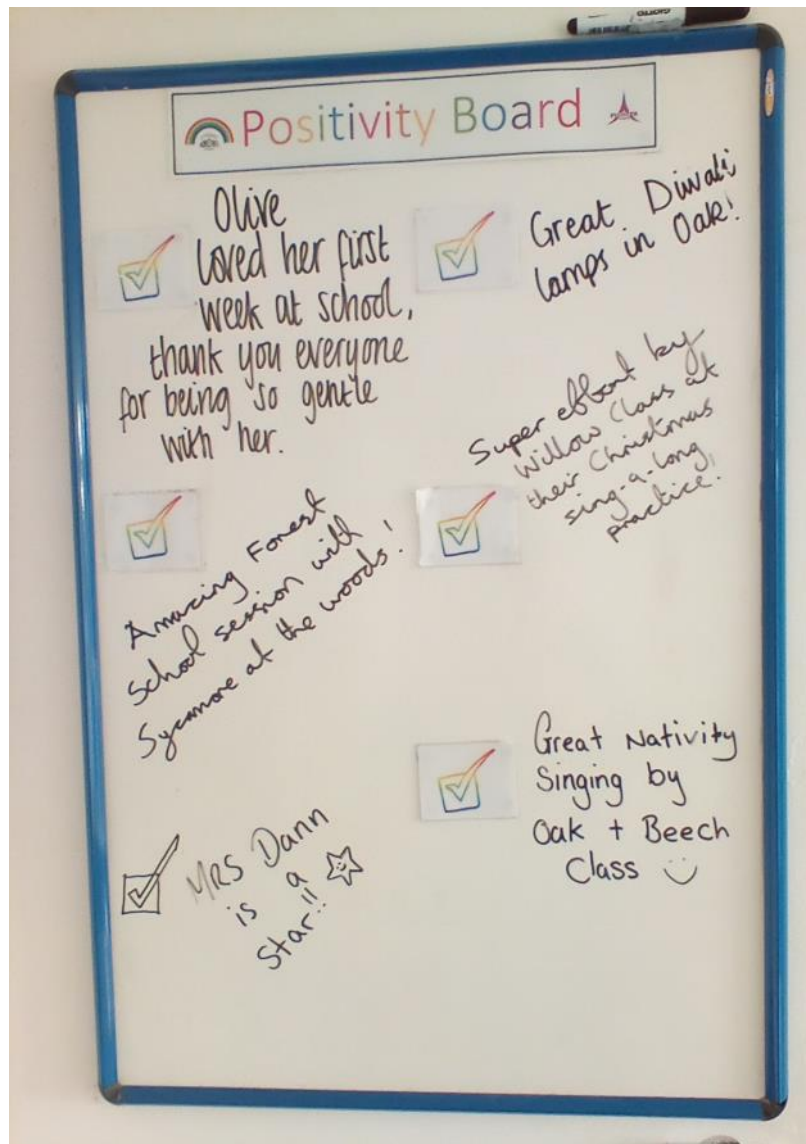 Positivity Board
Olive
loved her first
week at school,
thank you everyone
for being so gentle
with her.
Great Diwali
lamps in Oak!
Super effort by
Willow Class at
their Christmas
sing-a-long
practice!
Amazing Forest
School session with
Sycamore at the woods!
Great Nativity
Singing by
Oak + Beech
Class
MRS Dann
is a
Star!!